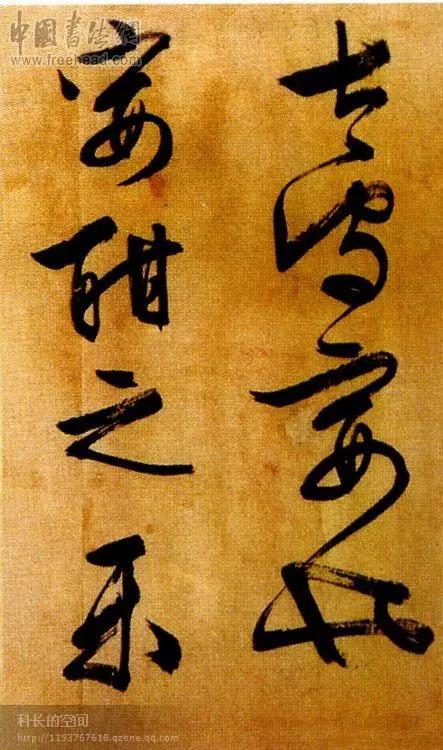 中國書法網
www.freehead.com
太守宴也
宴酣之乐
科长的空间
http://1193767618.qzone.qq.com